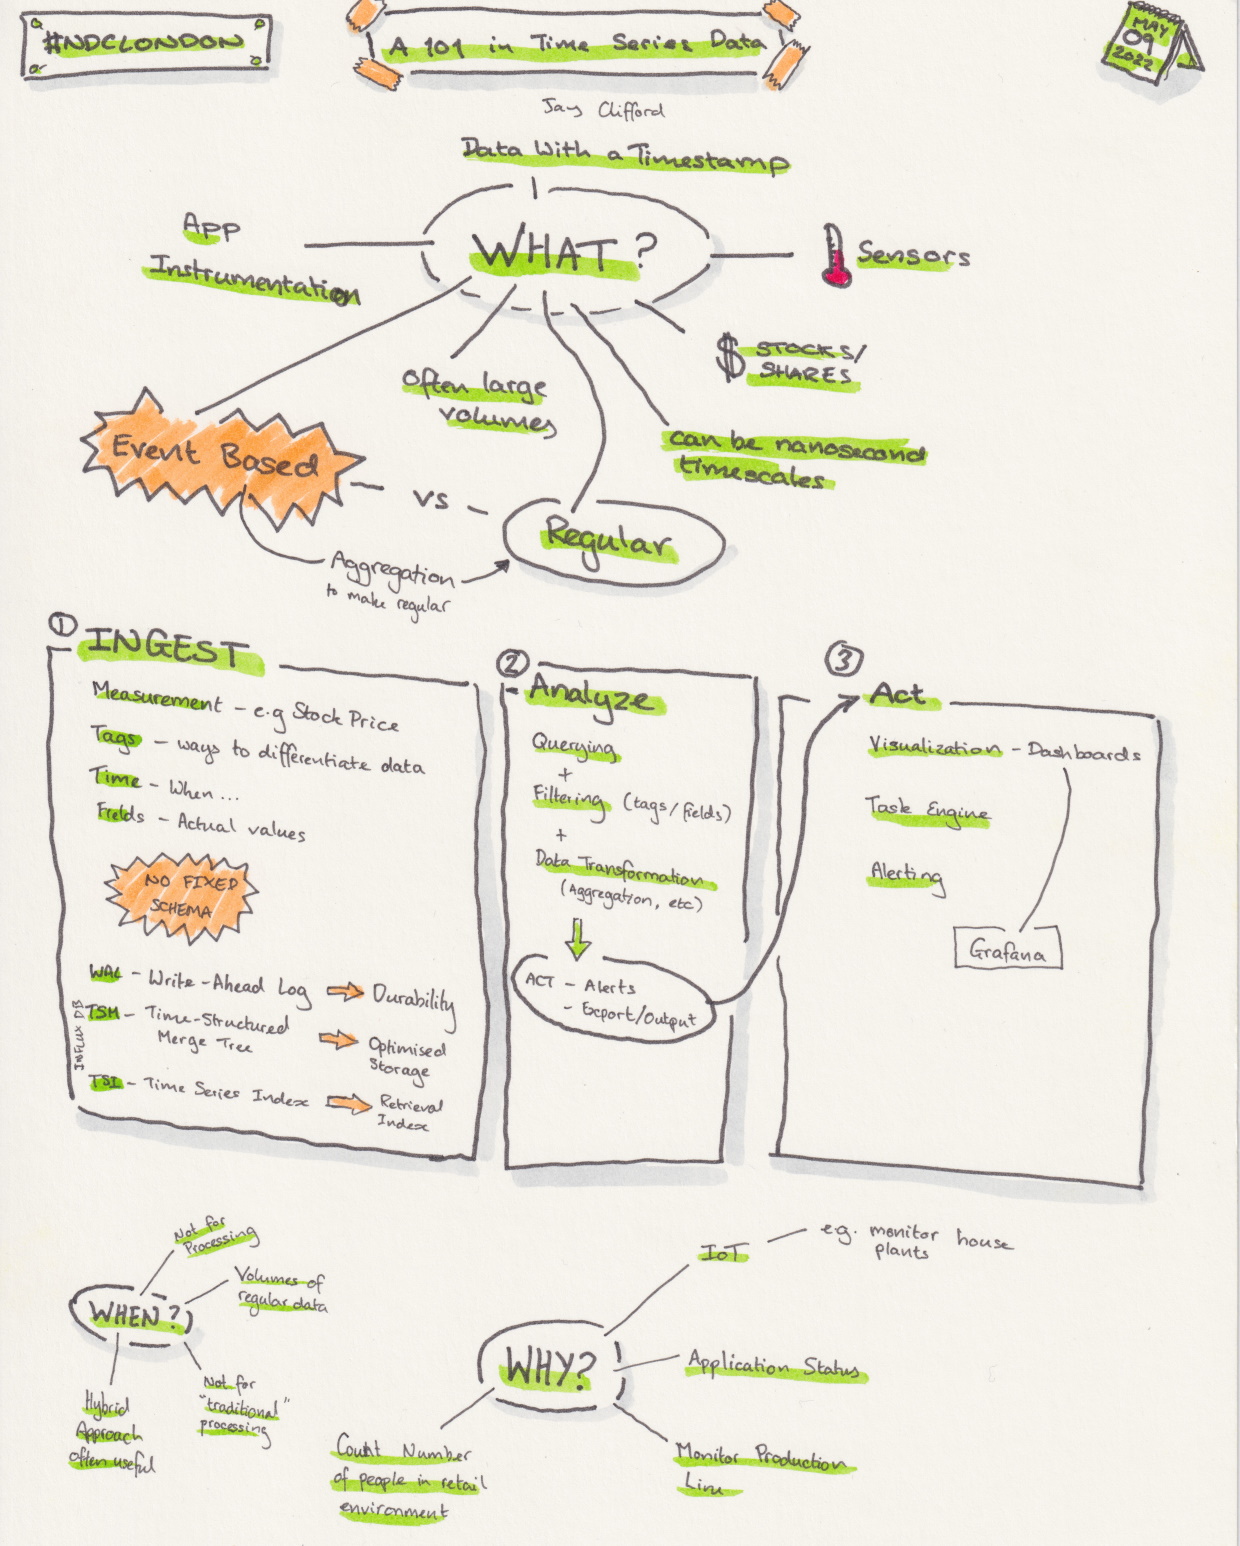 #NDCLONDON
A 101 in Time Series Data
MAY
09
2022
Jay Clifford
Data With a Timestamp
WHAT?
App
Instrumentation
Sensors
$ STOCKS/
SHARES
Often large
volumes
can be nanosecond
timescales
Event Based
vs
Regular
Aggregation
to make regular
① INGEST
Measurement - e.g Stock Price
Tags - ways to differentiate data
Time - When...
Fields - Actual values
NO FIXED
SCHEMA
INFLUX DB
WAL - Write-Ahead Log ⇒ Durability
TSM - Time-Structured
Merge Tree ⇒ Optimised
Storage
TSI - Time Series Index ⇒ Retrieval
Index
② Analyze
Querying
+
Filtering (tags/fields)
+
Data Transformation
(Aggregation, etc)
ACT - Alerts
- Export/Output
③ Act
Visualization - Dashboards
Task Engine
Alerting
Grafana
WHEN?
Not for
Processing
Volumes of
regular data
Not for
"traditional"
processing
Hybrid
Approach
often useful
WHY?
IoT
e.g. monitor house
plants
Application Status
Monitor Production
Line
Count Number
of people in retail
environment